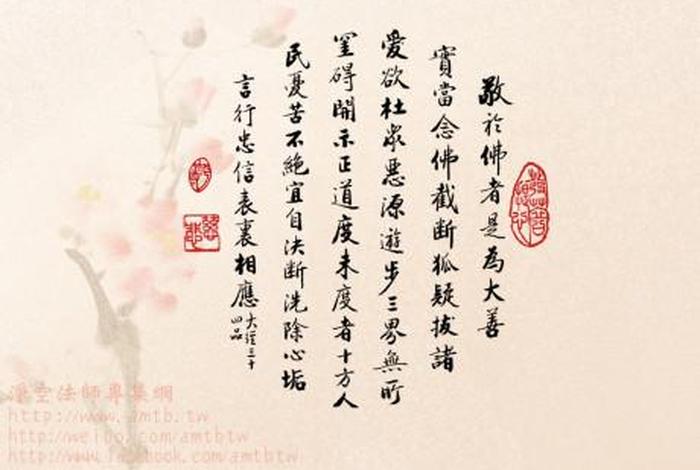 敬於佛者是為大善
實當念佛截斷狐疑拔諸
愛欲杜眾惡源遊步三界無所
罣碍開示正道度未度者十方人
民憂苦不絕宜自決斷洗除心垢
言行忠信表裏相應大經三十
四品
淨空法師專集網
http://www.amtb.tw
http://weibo.com/amtbtw
http://www.facebook.com/amtbtw